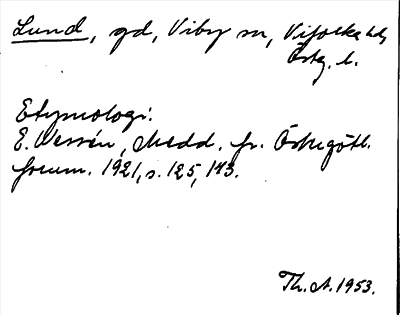 Lund, gd, Viby sn, Vifolka hd,
Östg. l.
Etymologi:
E. Wessén, Medd. fr. Östergötl.
fornm. 1921, s. 125, 143.
Th. A. 1953.